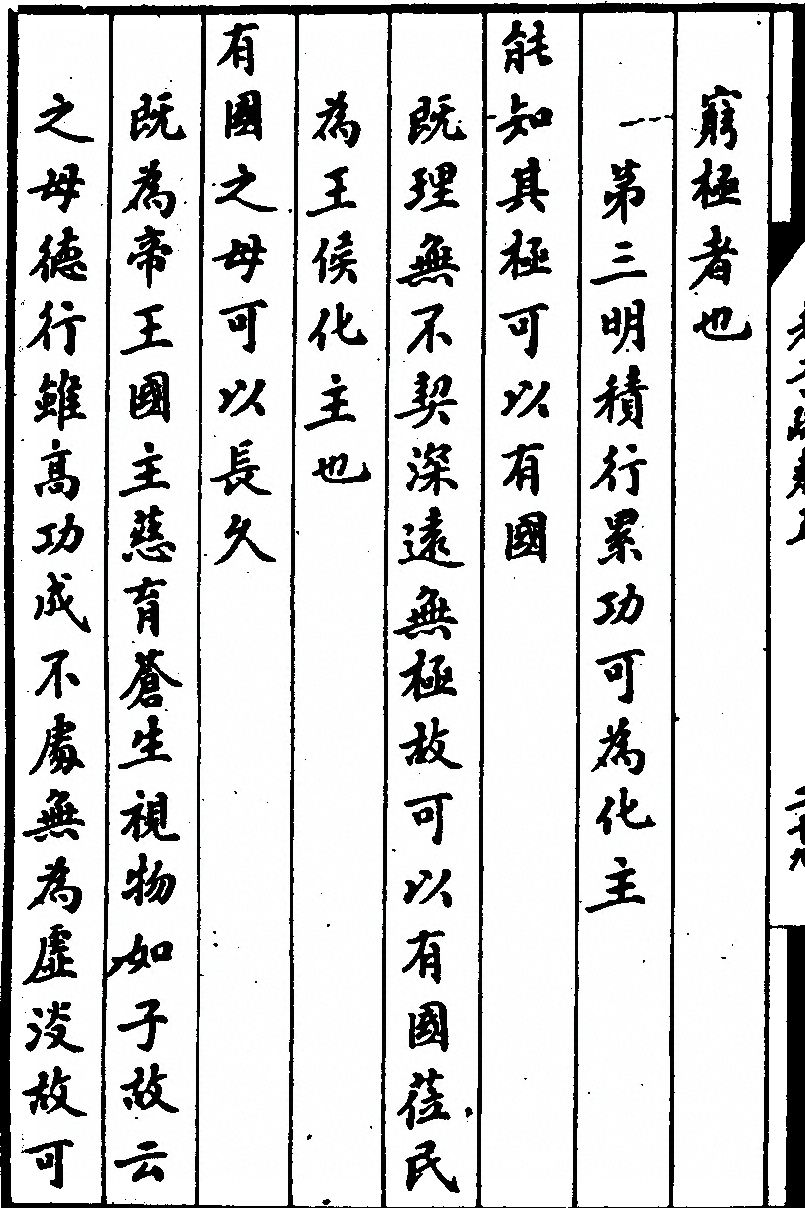 窮極者也
一第三明積行累功可為化主
能知其極可以有國
既理無不契深遠無極故可以有國莅民
為王侯化主也
有國之母可以長久
既為帝王國主慈育蒼生視物如子故云
之母德行雖高功成不處無為虛淡故可
二十九